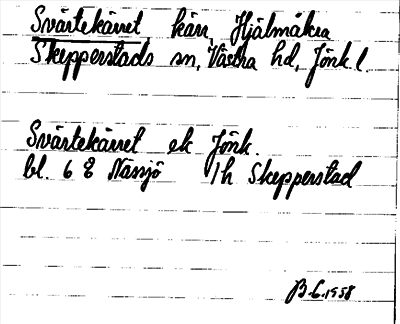 Svärtekärret, kärr, Hjälmåkra
Skepperstads sn, Västra hd, Jönk. l.
Svärtekärret ek Jönk.
bl. 6 E Nässjö 1 h Skepperstad
B.C. 1958